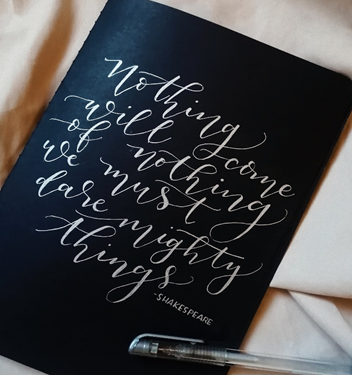 Nothing
will come
of nothing
we must
dare mighty
things
-SHAKESPEARE